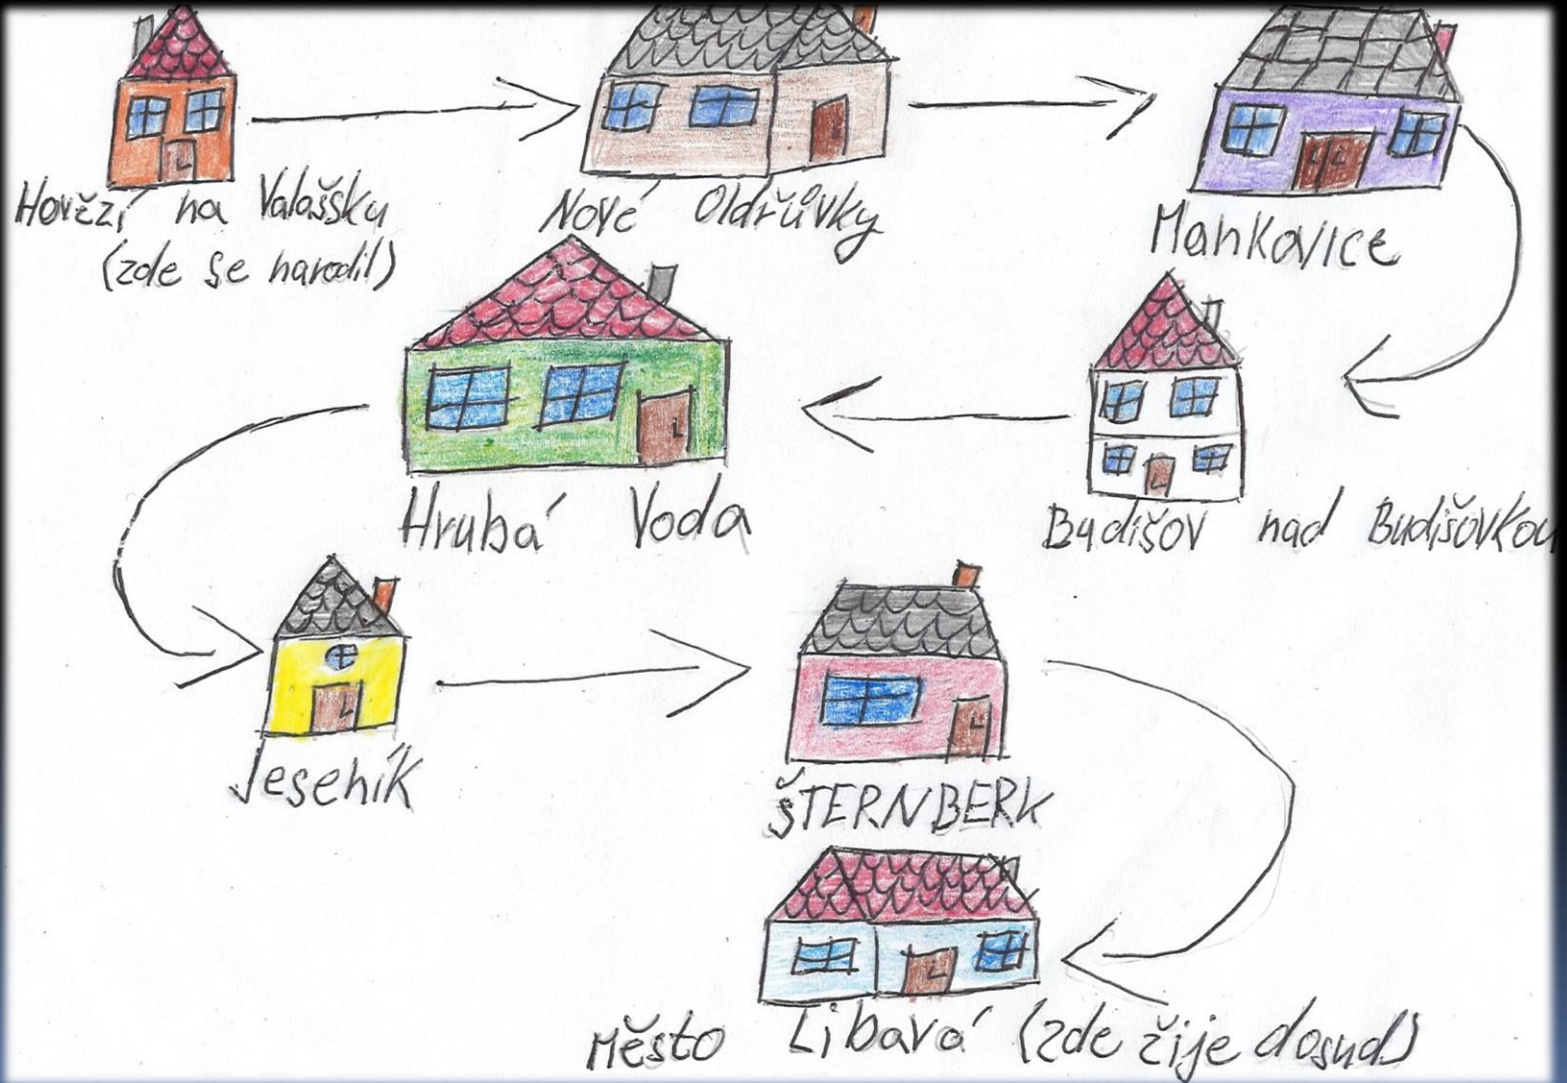 Hovězí na Valašsku
(zde se narodil)
Nové Oldřůvky
Mankovice
Budišov nad Budišovkou
Hrubá Voda
Jeseník
ŠTERNBERK
Město Libavá (zde žije dosud)